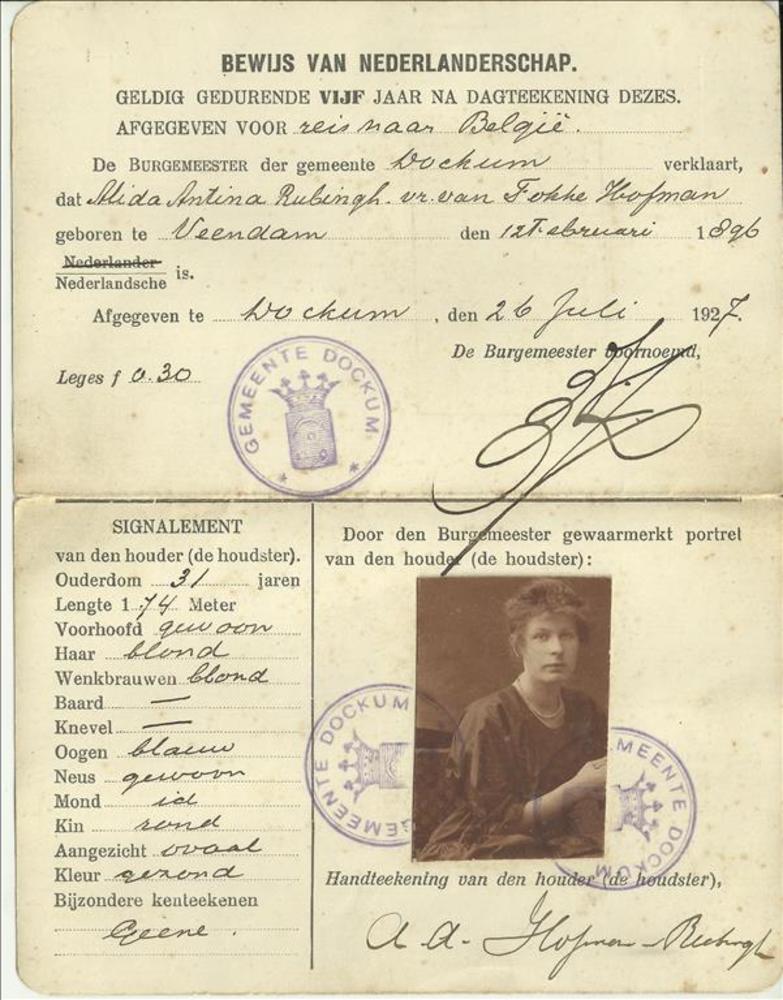 BEWIJS VAN NEDERLANDERSCHAP.
GELDIG GEDURENDE VIJF JAAR NA DAGTEEKENING DEZES.
AFGEGEVEN VOOR reis naar België.
De BURGEMEESTER der gemeente Dockum verklaart,
dat Alida Antina Rubingh. vr. van Fokke Hofman
geboren te Veendam den 12 Februari 1896
Nederlander
Nederlandsche is.
Afgegeven te Dockum, den 26 Juli 1927.
De Burgemeester voornoemd,
Leges f 0.30
GEMEENTE DOCKUM
SIGNALEMENT
van den houder (de houdster).
Ouderdom 31 jaren
Lengte 1.74 Meter
Voorhoofd gewoon
Haar blond
Wenkbrauwen blond
Baard —
Knevel —
Oogen blauw
Neus gewoon
Mond id
Kin rond
Aangezicht ovaal
Kleur gezond
Bijzondere kenteekenen
Geene.
Door den Burgemeester gewaarmerkt portret
van den houder (de houdster):
GEMEENTE DOCKUM
GEMEENTE DOCKUM
Handteekening van den houder (de houdster),
A. A. Hofman-Rubingh